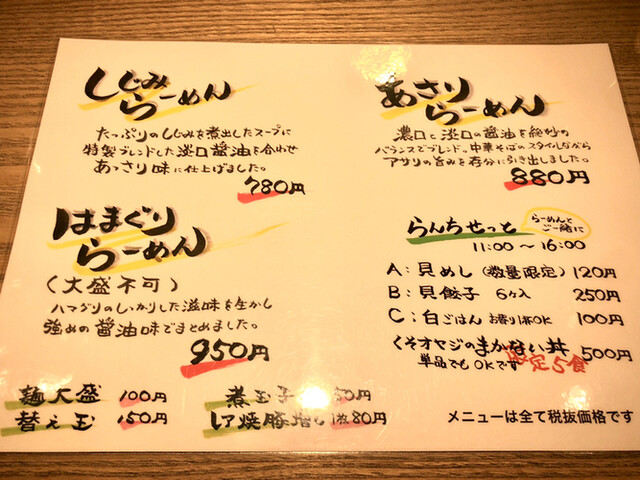 しじみ
らーめん
たっぷりのしじみを煮出したスープに
特製ブレンドした淡口醤油を合わせ
あっさり味に仕上げました。
780円
あさり
らーめん
濃口と淡口の醤油を絶妙の
バランスでブレンド。中華そばのスタイルながら
アサリの旨みを存分に引き出しました。
880円
はまぐり
らーめん
(大盛不可)
ハマグリのしっかりした滋味を生かし
強めの醤油味でまとめました。
950円
らんちせっと らーめんと
ご一緒に
11:00～16:00
A:貝めし(数量限定)120円
B:貝餃子 6ヶ入 250円
C:白ごはん お替り1杯OK 100円
くそオヤジのまかない丼 500円
単品でもOKです 限定5食
麺大盛 100円
替え玉 150円
煮玉子 50円
レア焼豚増し1枚80円
メニューは全て税抜価格です